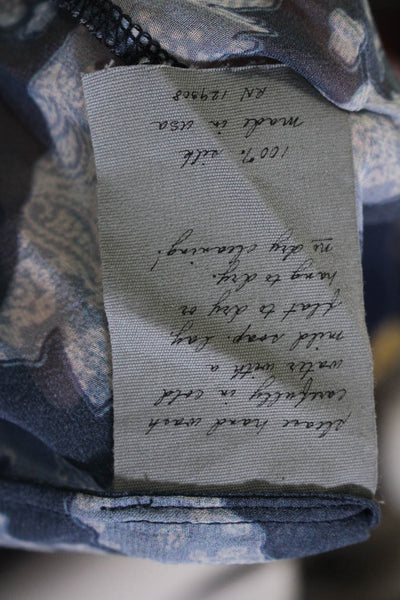 please hand wash
carefully in cold
water with a
mild soap. lay
flat to dry or
hang to dry.
no dry cleaning!
100% silk
made in usa
RN 129308